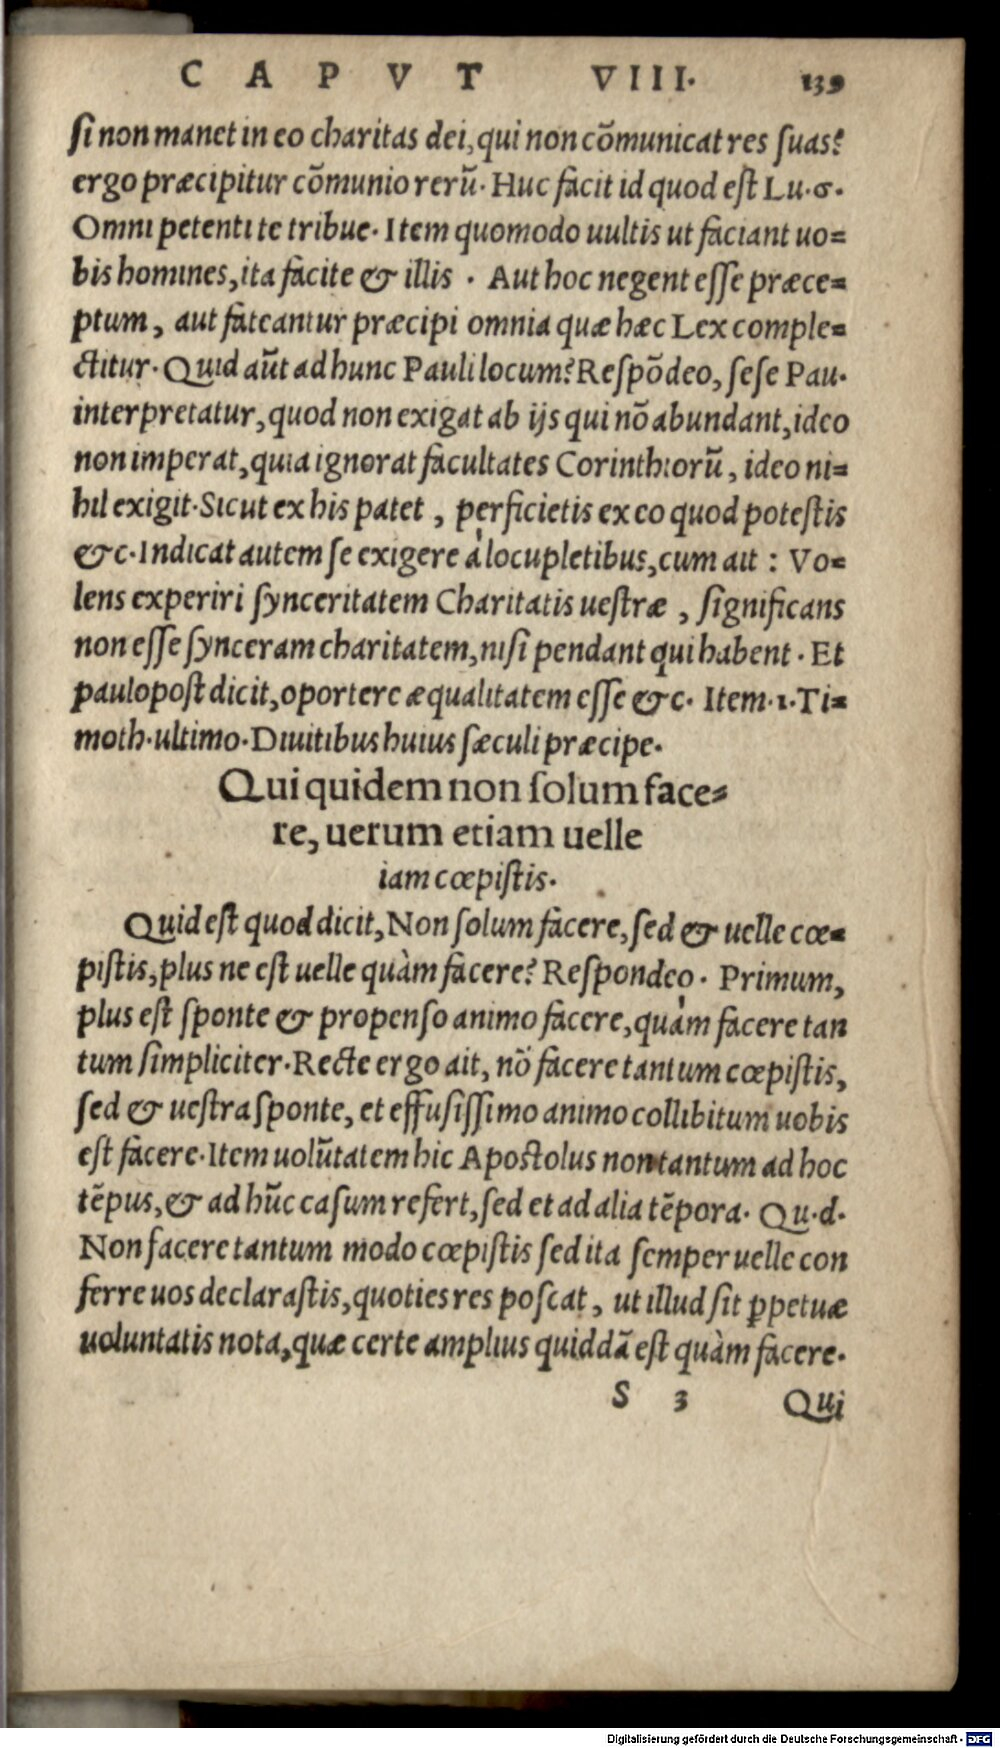 CAPVT VIII. 139
si non manet in eo charitas dei, qui non cōmunicat res suas?
ergo præcipitur cōmunio rerū. Huc facit id quod est Lu.6.
Omni petenti te tribue. Item quomodo uultis ut faciant uo=
bis homines, ita facite & illis . Aut hoc negent esse præce=
ptum, aut fateantur præcipi omnia quæ hæc Lex comple=
ctitur. Quid aūt ad hunc Pauli locum? Respōdeo, sese Pau.
interpretatur, quod non exigat ab ijs qui nō abundant, ideo
non imperat, quia ignorat facultates Corinthiorū, ideo ni=
hil exigit. Sicut ex his patet , perficietis ex eo quod potestis
&c. Indicat autem se exigere à locupletibus, cum ait : Vo=
lens experiri synceritatem Charitatis uestræ , significans
non esse synceram charitatem, nisi pendant qui habent . Et
paulopost dicit, oportere æqualitatem esse &c. Item.1.Ti=
moth.ultimo. Diuitibus huius sæculi præcipe.
Qui quidem non solum face=
re, uerum etiam uelle
iam cœpistis.
Quid est quod dicit, Non solum facere, sed & uelle cœ=
pistis, plus ne est uelle quàm facere? Respondeo . Primum,
plus est sponte & propenso animo facere, quàm facere tan
tum simpliciter. Recte ergo ait, nō facere tantum cœpistis,
sed & uestra sponte, et effusissimo animo collibitum uobis
est facere. Item uolūtatem hic Apostolus non tantum ad hoc
tēpus, & ad hūc casum refert, sed et ad alia tēpora. Qu.d.
Non facere tantum modo cœpistis sed ita semper uelle con
ferre uos declarastis, quoties res poscat, ut illud sit ꝑpetuæ
uoluntatis nota, quæ certe amplius quiddā est quàm facere.
S 3 Qui
Digitalisierung gefördert durch die Deutsche Forschungsgemeinschaft - DFG